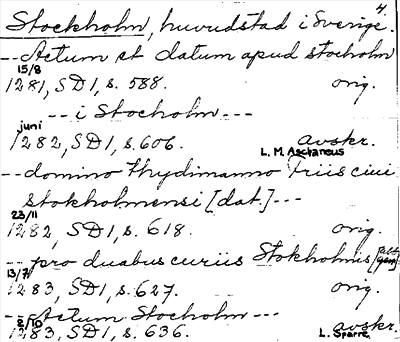 4.
Stockholm, huvudstad i Sverige.
-- Actum et datum apud stocholm
15/8
1281, SD1, s. 588. orig.
-- i Stocholm ---
juni
1282, SD1, s. 606. avskr.
L. M. Aschaneus
-- domino Thydimanno Friis ciui
stokholmensi [dat.] ---
23/11
1282, SD1, s. 618. orig.
-- pro duabus curiis Stokholmis
13/7
1283, SD1, s. 627. orig.
-- Actum Stocholm ---
2/10
1283, SD1, s. 636. avskr.
L. Sparre